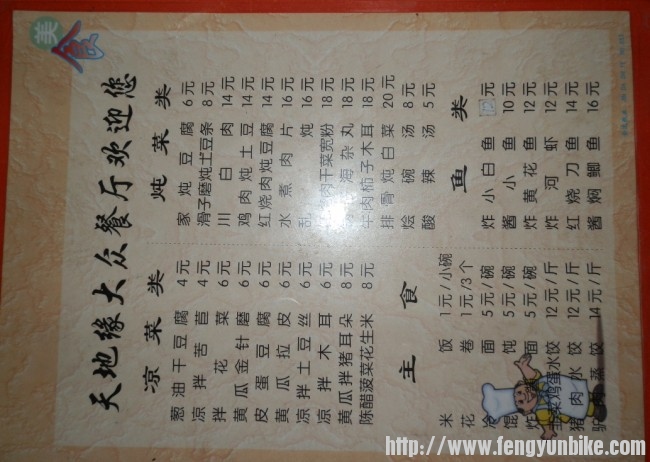 美食
天地缘大众餐厅欢迎您
凉菜类
葱油干豆腐 4元
凉拌苦苣 4元
拌花菜 6元
黄瓜金针磨 6元
皮蛋豆腐 6元
黄瓜拉皮 6元
凉拌土豆丝 6元
凉拌木耳 6元
黄瓜拌猪耳朵 8元
陈醋菠菜花生米 8元
炖菜类
家炖豆腐 6元
滑子磨炖土豆条 8元
川白肉 14元
鸡肉炖土豆 14元
红烧肉炖豆腐 14元
水煮肉片 16元
乱炖 16元
肉干菜宽粉 18元
海杂丸 18元
牛肉柿子木耳 18元
排骨炖白菜 20元
烩碗汤 8元
酸辣汤 5元
主食
米饭 1元/小碗
花卷 1元/3个
冷面 5元/碗
馄饨 5元/碗
炸面 5元/碗
韭菜鸡蛋水饺 12元/斤
猪肉水饺 12元/斤
蒸饺 14元/斤
鱼类
炸小白鱼 12元
酱小鱼 10元
炸黄花鱼 12元
炸河虾 12元
红烧刀鱼 14元
酱焖鲫鱼 16元
http://www.fengyunbike.com